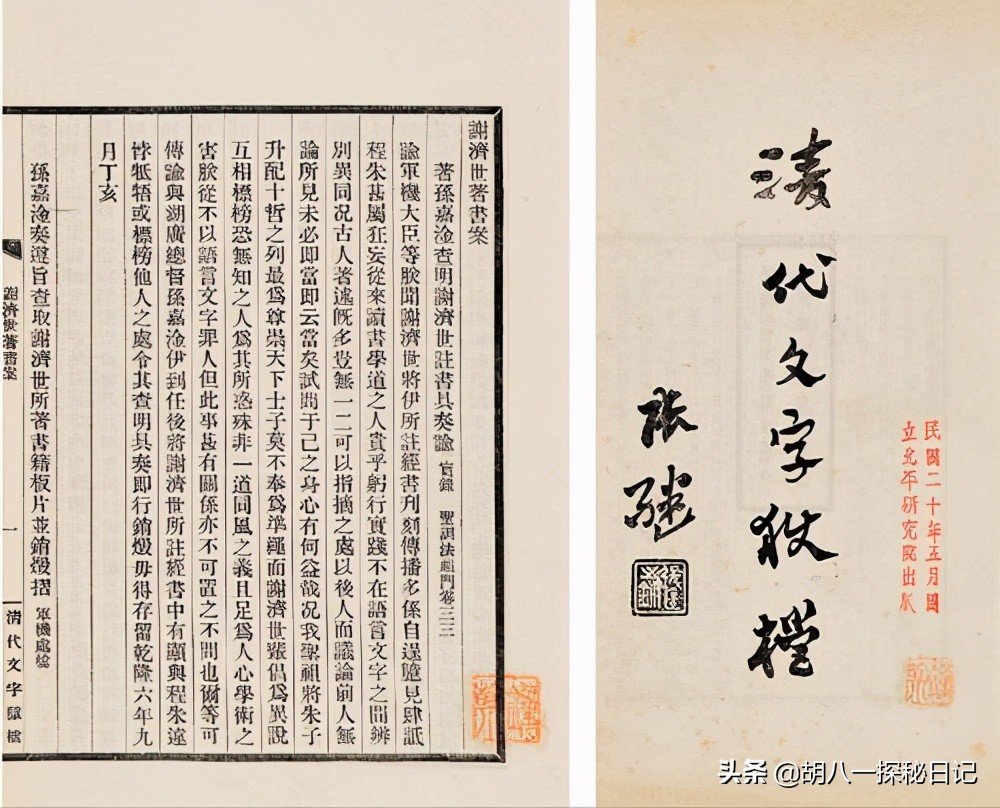 謝濟世著書案
著孫嘉淦查明謝濟世註書具奏諭 實錄 聖訓法祖門卷三三
諭軍機大臣等朕聞謝濟世將伊所註經書刊刻傳播多係自逞臆見肆詆
程朱甚屬狂妄從來讀書學道之人貴乎躬行實踐不在語言文字之間辨
別異同況古人著述既多豈無一二可以指摘之處以後人而議論前人無
論所見未必即當即云當矣試問于己之身心有何益哉況我聖祖將朱子
升配十哲之列最爲尊崇天下士子莫不奉爲準繩而謝濟世輩倡爲異說
互相標榜恐無知之人爲其所惑殊非一道同風之義且足爲人心學術之
害朕從不以語言文字罪人但此事甚有關係亦不可置之不問也爾等可
傳諭與湖廣總督孫嘉淦伊到任後將謝濟世所註經書中有顯與程朱違
悖牴牾或標榜他人之處令其查明具奏即行銷燬毋得存留乾隆六年九
月丁亥
孫嘉淦奏遵旨查取謝濟世所著書籍板片並銷燬摺 軍機處檔
謝濟世著書案
一
清代文字獄檔
民國二十年五月國
立北平研究院出版
清代文字獄檔
張繼
头条 @胡八一探秘日记